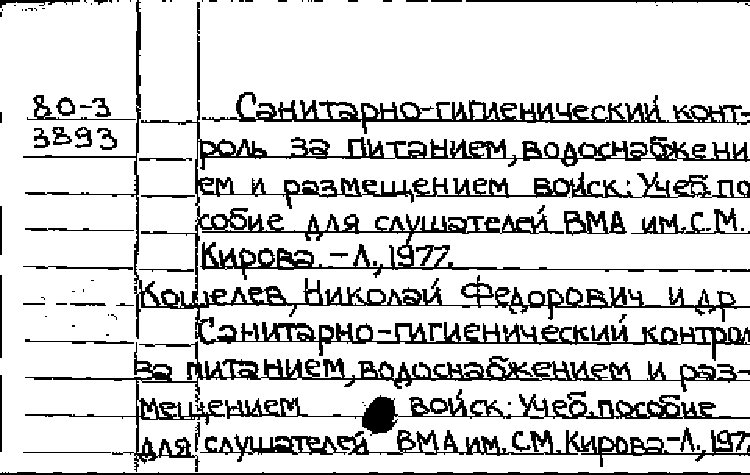 80-3
3893
Санитарно-гигиенический конт-
роль за питанием, водоснабжени
ем и размещением войск: Учеб. по
собие для слушателей ВМА им. С.М.
Кирова. - Л., 1977.
Кошелев, Николай Федорович и др
Санитарно-гигиенический контрол
за питанием, водоснабжением и раз-
мещением войск: Учеб. пособие
для слушателей ВМА им. С.М. Кирова.-Л., 197